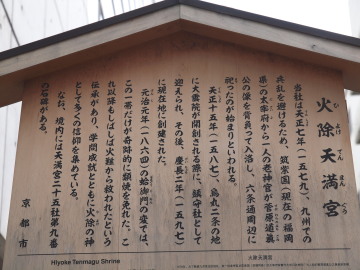 火除天満宮
ひよけてんまんぐう
当社は天正七年(一五七九)、九州での
兵乱を避けるため、筑紫国(現在の福岡
県)の太宰府から一人の老神官が菅原道真
公の像を背負って入洛し、六条通周辺に
祀ったのが始まりといわれる。
天正十五年(一五八七)、烏丸二条の地
に大雲院が開創される際に、鎮守社として
迎えられ、その後、慶長二年(一五九七)
に現在地に創建された。
元治元年(一八六四)の蛤御門の変では、
この一帯だけが奇跡的に類焼を免れた。こ
れ以外もしばしば火難から救われたという
伝承があり、学問成就とともに火除の神
として多くの信仰を集めている。
なお、境内には天満宮二十五社第九番
の石碑がある。
京都市
Hiyoke Tenmagu Shrine
火除天満宮